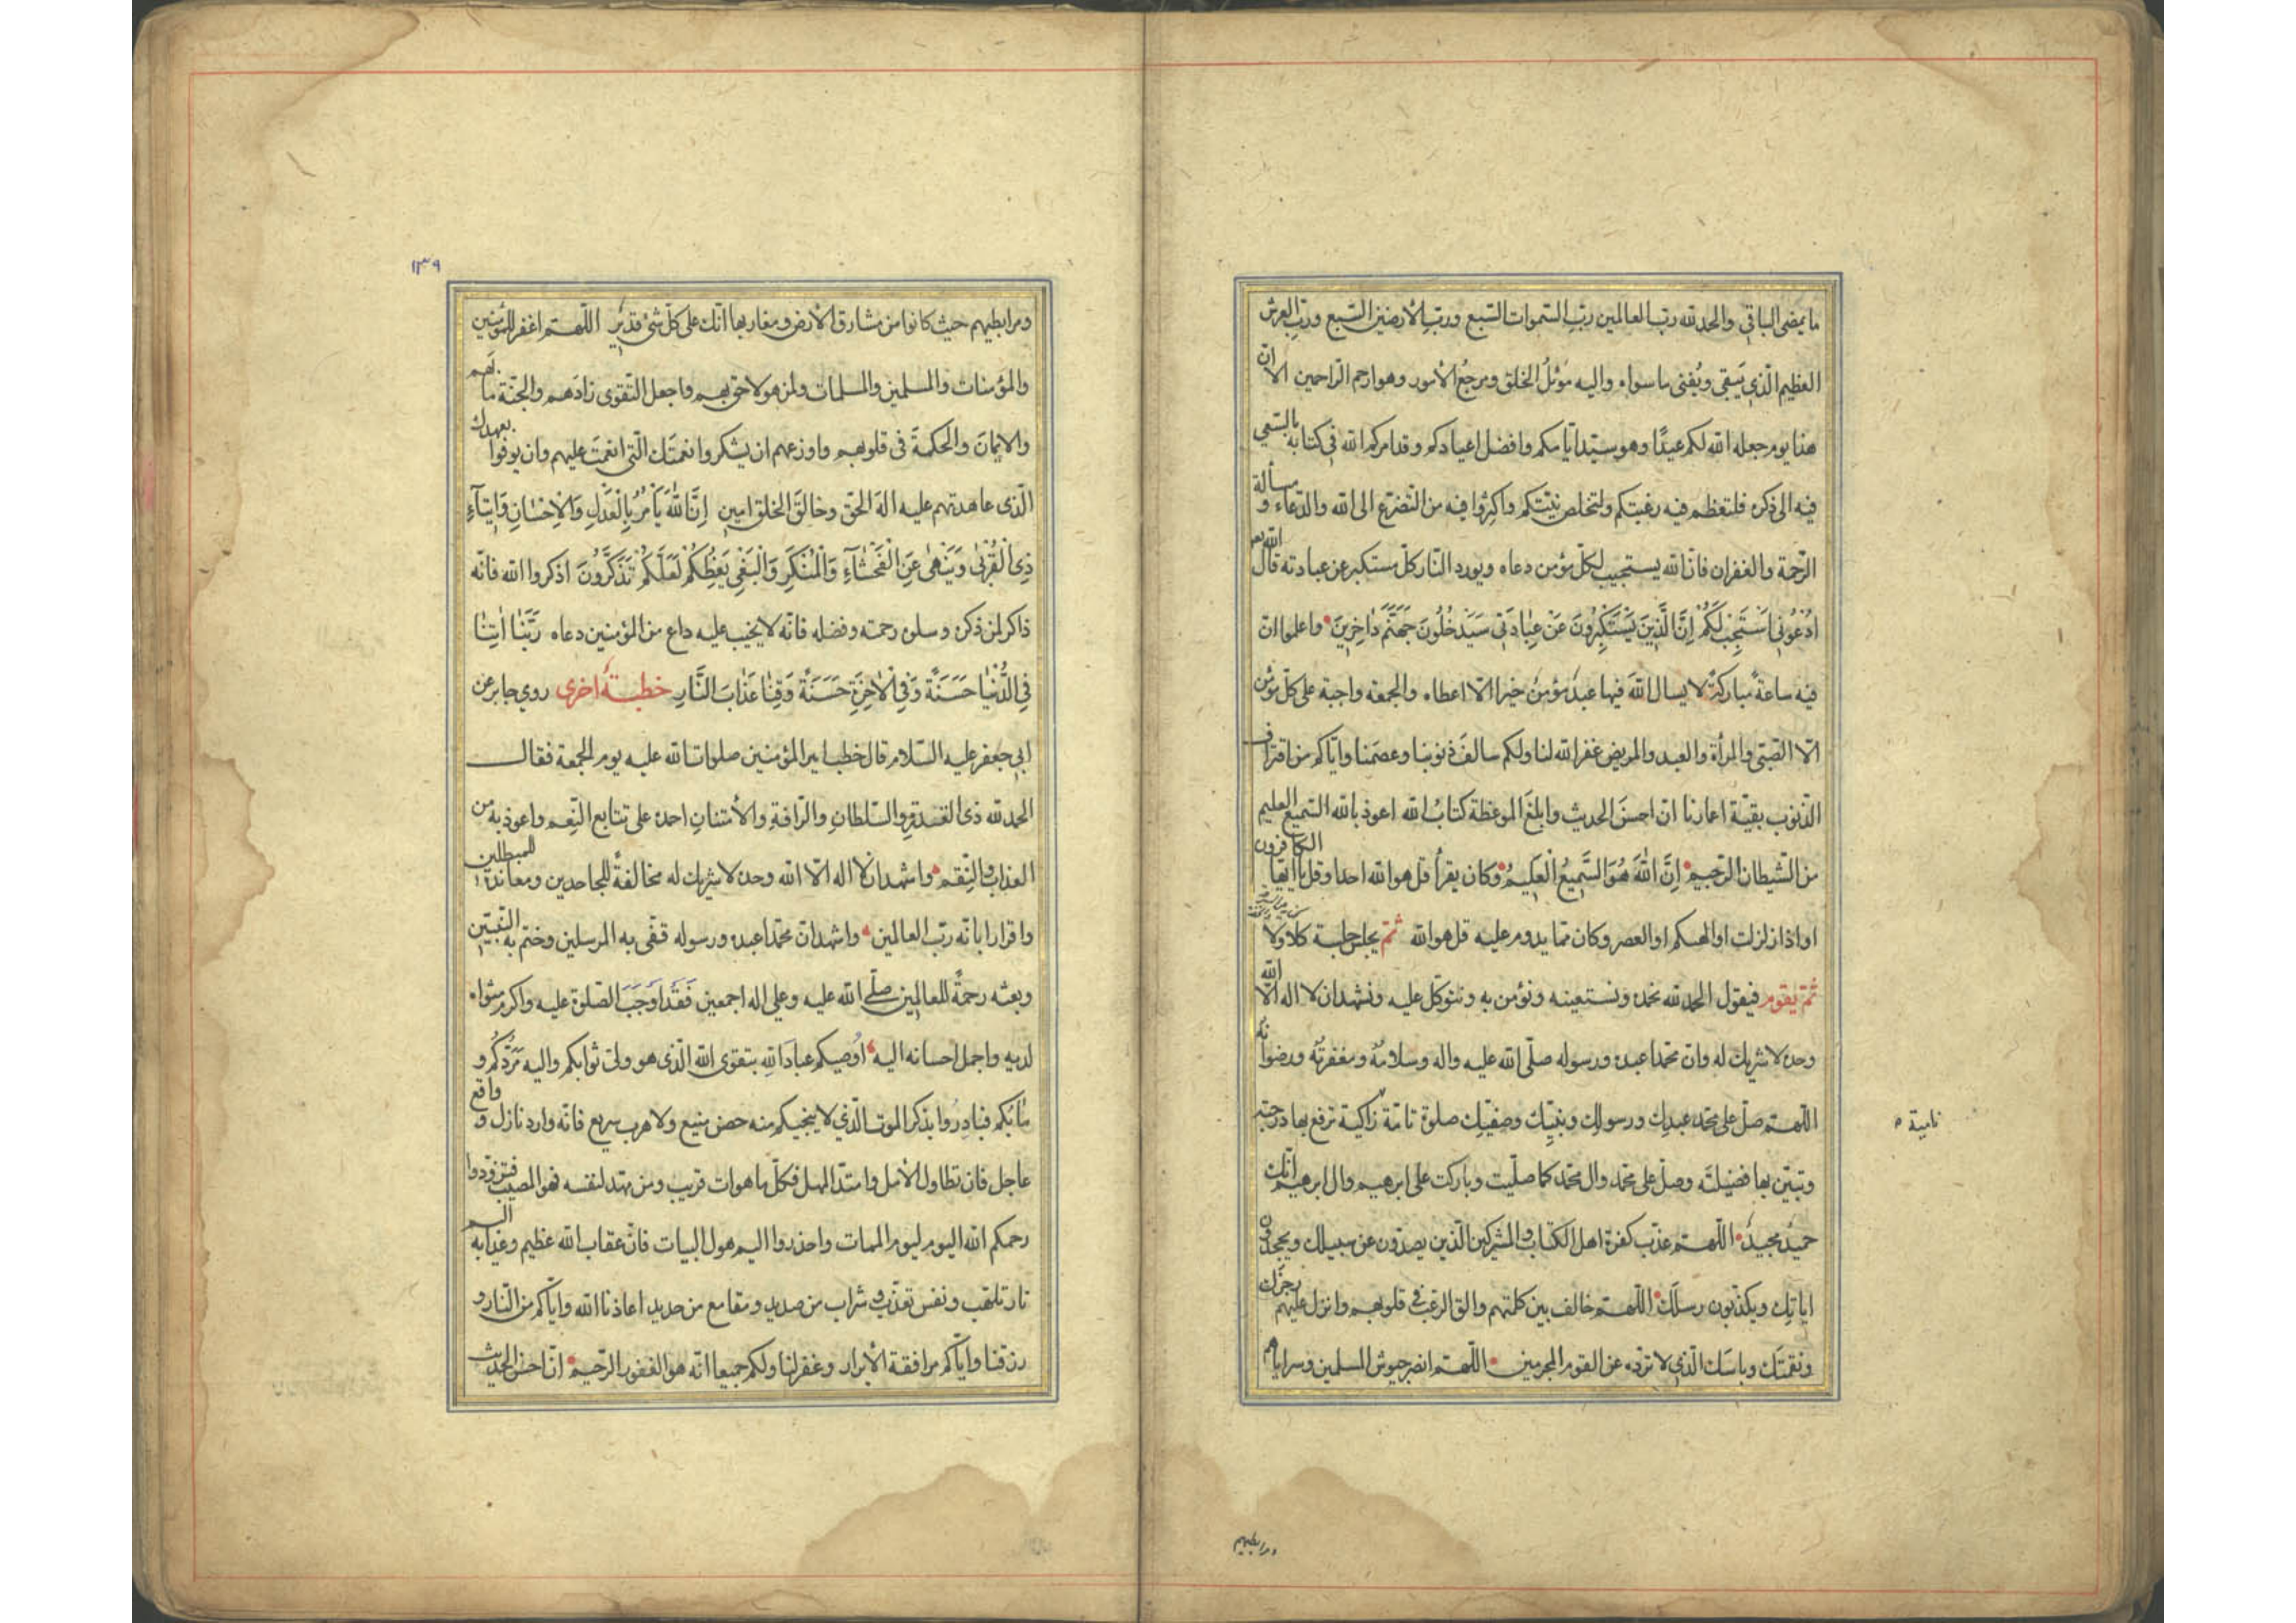 ما يمضى الباقي والحمد لله رب العالمين ربّ السّموات السّبع وربّ الأرضين السّبع وربّ العرش
العظيم الّذي يَبقى ويُفنى ما سواه واليه موئلُ الخلق ومرجعُ الأمور وهو ارحم الرّاحمين الا انّ
هذا يوم جعله الله لكم عيدًا وهو سيّد ايّامكم وافضل اعيادكم وقد امركم الله في كتابه بالسّعي
فيه الى ذكره فلتعظم فيه رغبتكم ولتخلص نيّتكم واكثروا فيه من التّضرّع الى الله والدّعاء ومسألة
الرّحمة والغفران فانّ الله يستجيب لكلّ مؤمن دعاه ويورد النّار كلّ مستكبر عن عبادته قال الله تعه
ادْعُونِي اَسْتَجِبْ لَكُمْ اِنَّ الَّذِينَ يَسْتَكْبِرُونَ عَنْ عِبٰادَتِي سَيَدْخُلُونَ جَهَنَّمَ دٰاخِرِينَ واعلموا انّ
فيه ساعةً مباركةً لا يسال اللهَ فيها عبدٌ مؤمنٌ خيرا الّا اعطاه والجمعة واجبة على كلّ مؤمن
الّا الصّبّي والمرأة والعبد والمريض غفر الله لنا ولكم سالفَ ذنوبنا وعصَمنا وايّاكم من اقتراف
الذّنوب بقيّة اعمارنا انّ احسنَ الحديث وابلغَ الموعظة كتابُ الله اعوذ بالله السّميع العليم
من الشّيطان الرّجيم اِنَّ اللهَ هُوَ السَّمِيعُ الْعَلِيمُ وكان يقرأ قل هو الله احد او قل يا ايّها الكافرون
او اذا زلزلت او الهيكم او العصر وكان ممّا يدوم عليه قل هو الله ثمّ يجلس جلسة كلا ولا
ثمّ يقوم فيقول الحمد لله نحمده ونستعينه ونؤمن به ونتوكّل عليه ونشهد ان لا اله الّا الله
وحده لا شريك له وانّ محمّدا عبده ورسوله صلّى الله عليه واله وسلامُهُ ومغفرتُه ورضوانُه
اللّهمّ صلّ على محمّد عبدِك ورسولِك ونبيّك وصفيّك صلوةً تامّة زاكية ترفع بها درجته
نامية
وتبيّن بها فضيلتَه وصلّ على محمّد وال محمّد كما صلّيت وباركت على ابرهيم وال ابرهيم انّك
حميدٌ مجيدٌ اللّهمّ عذّب كفرة اهل الكتاب والمشركين الّذين يصدّون عن سبيلك ويجحدون
اياتِك ويكذّبون رسلَك اللّهمّ خالف بين كلمتهم والق الرّعب في قلوبهم وانزل عليهم رجزك
ونقمتَك وباسَك الّذي لا تردّه عن القوم المجرمين اللّهمّ انصر جيوش المسلمين وسراياهم
ومرابطيهم
١٣٩
ومرابطيهم حيث كانوا من مشارق الأرض ومغاربها انّك على كلّ شئ قدير اللّهمّ اغفر للمؤمنين
والمؤمنات والمسلمين والمسلمات ولمن هو لاحق بهم واجعل التّقوى زادَهم والجنّة مابَهم
والايمانَ والحكمةَ في قلوبهم واوزعهم ان يشكروا نعمتَك الّتي انعمتَ عليهم وان يوفوا بعهدك
الّذى عاهدتهم عليه الهَ الحقّ وخالقَ الخلق امين اِنَّ اللهَ يَأْمُرُ بِالْعَدْلِ وَالْاِحْسٰانِ وَاِيتٰآءِ
ذِي الْقُرْبٰى وَيَنْهٰى عَنِ الْفَحْشٰآءِ وَالْمُنْكَرِ وَالْبَغْيِ يَعِظُكُمْ لَعَلَّكُمْ تَذَكَّرُونَ اذكروا الله فانّه
ذاكر لمن ذكره وسلوه رحمته وفضله فانّه لا يخيب عليه داع من المؤمنين دعاه رَبَّنٰا اٰتِنٰا
فِي الدُّنْيٰا حَسَنَةً وَفِي الْاٰخِرَةِ حَسَنَةً وَقِنٰا عَذٰابَ النّٰارِ خطبةٌ اخرى روى جابر عن
ابي جعفر عليه السّلام قال خطب امير المؤمنين صلوات الله عليه يوم الجمعة فقال
الحمد لله ذي القدرةِ والسّلطانِ والرّافةِ والأمتنانِ احمده على تتابع النّعم واعوذ به من
العذاب والنّقم واشهد ان لا اله الّا الله وحده لا شريك له مخالفةً للجاحدين ومعاندةً للمبطلين
واقرارا بانّه ربّ العالمين واشهد انّ محمّدا عبده ورسوله قفّى به المرسلين وختم به النّبيّين
وبعثه رحمةً للعالمين صلّى الله عليه وعلى اله اجمعين فَقَد اَوجَبَ الصّلوة عليه واكرم مثواه
لديه واجمل احسانه اليه اوصيكم عبادَ اللهِ بتقوى الله الّذى هو ولىّ ثوابكم واليه مَرَدُّكُم و
مٰابُكم فبادِرُوا بذكر الموت الّذي لا ينجيكم منه حصن منيع ولا هرب سريع فانّه وارد نازل وواقع
عاجل فان تطاول الأمل وامتدّ المهل فكلّ ما هو ات قريب ومن مهّد لنفسه فهو المصيب فتزوّدوا
رحمكم الله اليوم ليوم الممات واحذروا اليم هول البيات فانّ عقاب الله عظيم وعذابه اليم
نار تلهّب ونفس تعذّب وشراب من صديد ومقامع من حديد اعاذنا الله وايّاكم من النّار و
رزقنا وايّاكم مرافقة الأبرار وغفر لنا ولكم جميعا انّه هو الغفور الرّحيم انّ احسن الحديث